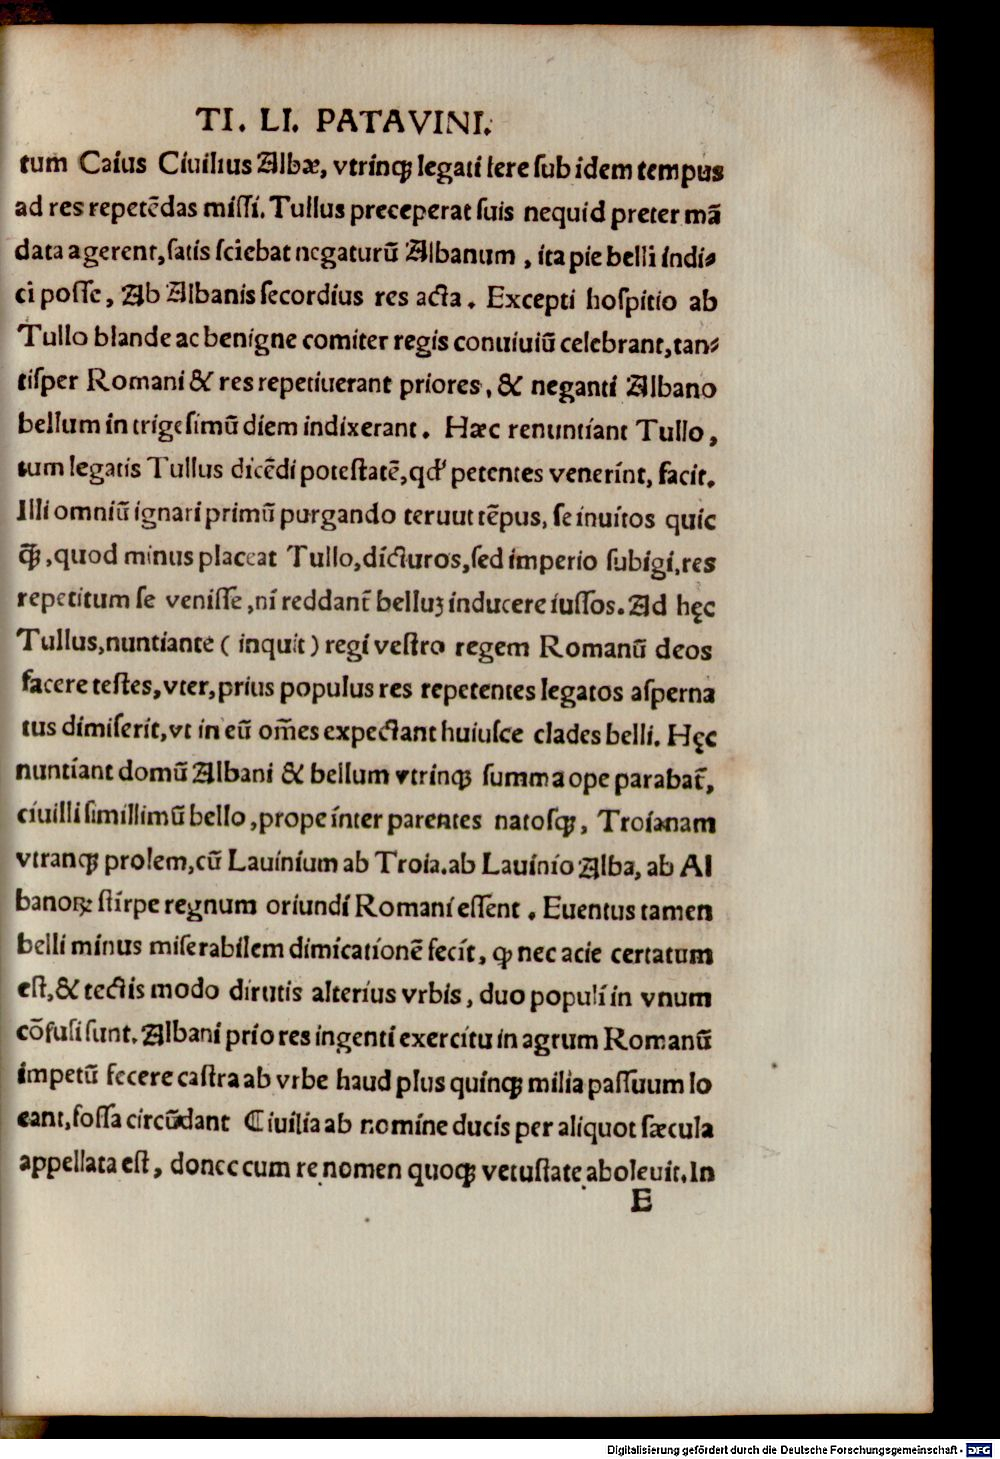 TI. LI. PATAVINI.
tum Caius Ciuilius Albæ, vtrinqꝫ legati fere ſub idem tempus
ad res repetẽdas miſſi. Tullus preceperat ſuis nequid preter mã
data agerent, ſatis ſciebat negaturũ Albanum, ita pie belli indi⸗
ci poſſe, Ab Albanis ſecordius res acta. Excepti hoſpitio ab
Tullo blande ac benigne comiter regis conuiuiũ celebrant, tan⸗
tiſper Romani & res repetiuerant priores, & neganti Albano
bellum in trigeſimũ diem indixerant. Hæc renuntiant Tullo,
tum legatis Tullus dicẽdi poteſtatẽ, qd' petentes venerint, facit.
Illi omniũ ignari primũ purgando teruut tẽpus, ſe inuitos quic
q̃ꝫ, quod minus placeat Tullo, dicturos, ſed imperio ſubigi, res
repetitum ſe veniſſe, ni reddant̃ belluꝫ inducere iuſſos. Ad hęc
Tullus, nuntiante ( inquit ) regi veſtro regem Romanũ deos
facere teſtes, vter, prius populus res repetentes legatos aſperna
tus dimiſerit, vt in eũ om̃es expectant huiuſce clades belli. Hęc
nuntiant domũ Albani & bellum vtrinqꝫ ſumma ope parabat̃,
ciuilli ſimillimũ bello, prope inter parentes natoſqꝫ, Troianam
vtranqꝫ prolem, cũ Lauinium ab Troia. ab Lauinio Alba, ab Al
banoꝝ ſtirpe regnum oriundi Romani eſſent. Euentus tamen
belli minus miſerabilem dimicationẽ fecit, ꝙ nec acie certatum
eſt, & tectis modo dirutis alterius vrbis, duo populi in vnum
cõfuſi ſunt. Albani prio res ingenti exercitu in agrum Romanũ
impetũ fecere caſtra ab vrbe haud plus quinqꝫ milia paſſuum lo
cant, foſſa circũdant Ciuilia ab nomine ducis per aliquot ſæcula
appellata eſt, donec cum re nomen quoqꝫ vetuſtate aboleuit. In
E
Digitalisierung gefördert durch die Deutsche Forschungsgemeinschaft - DFG